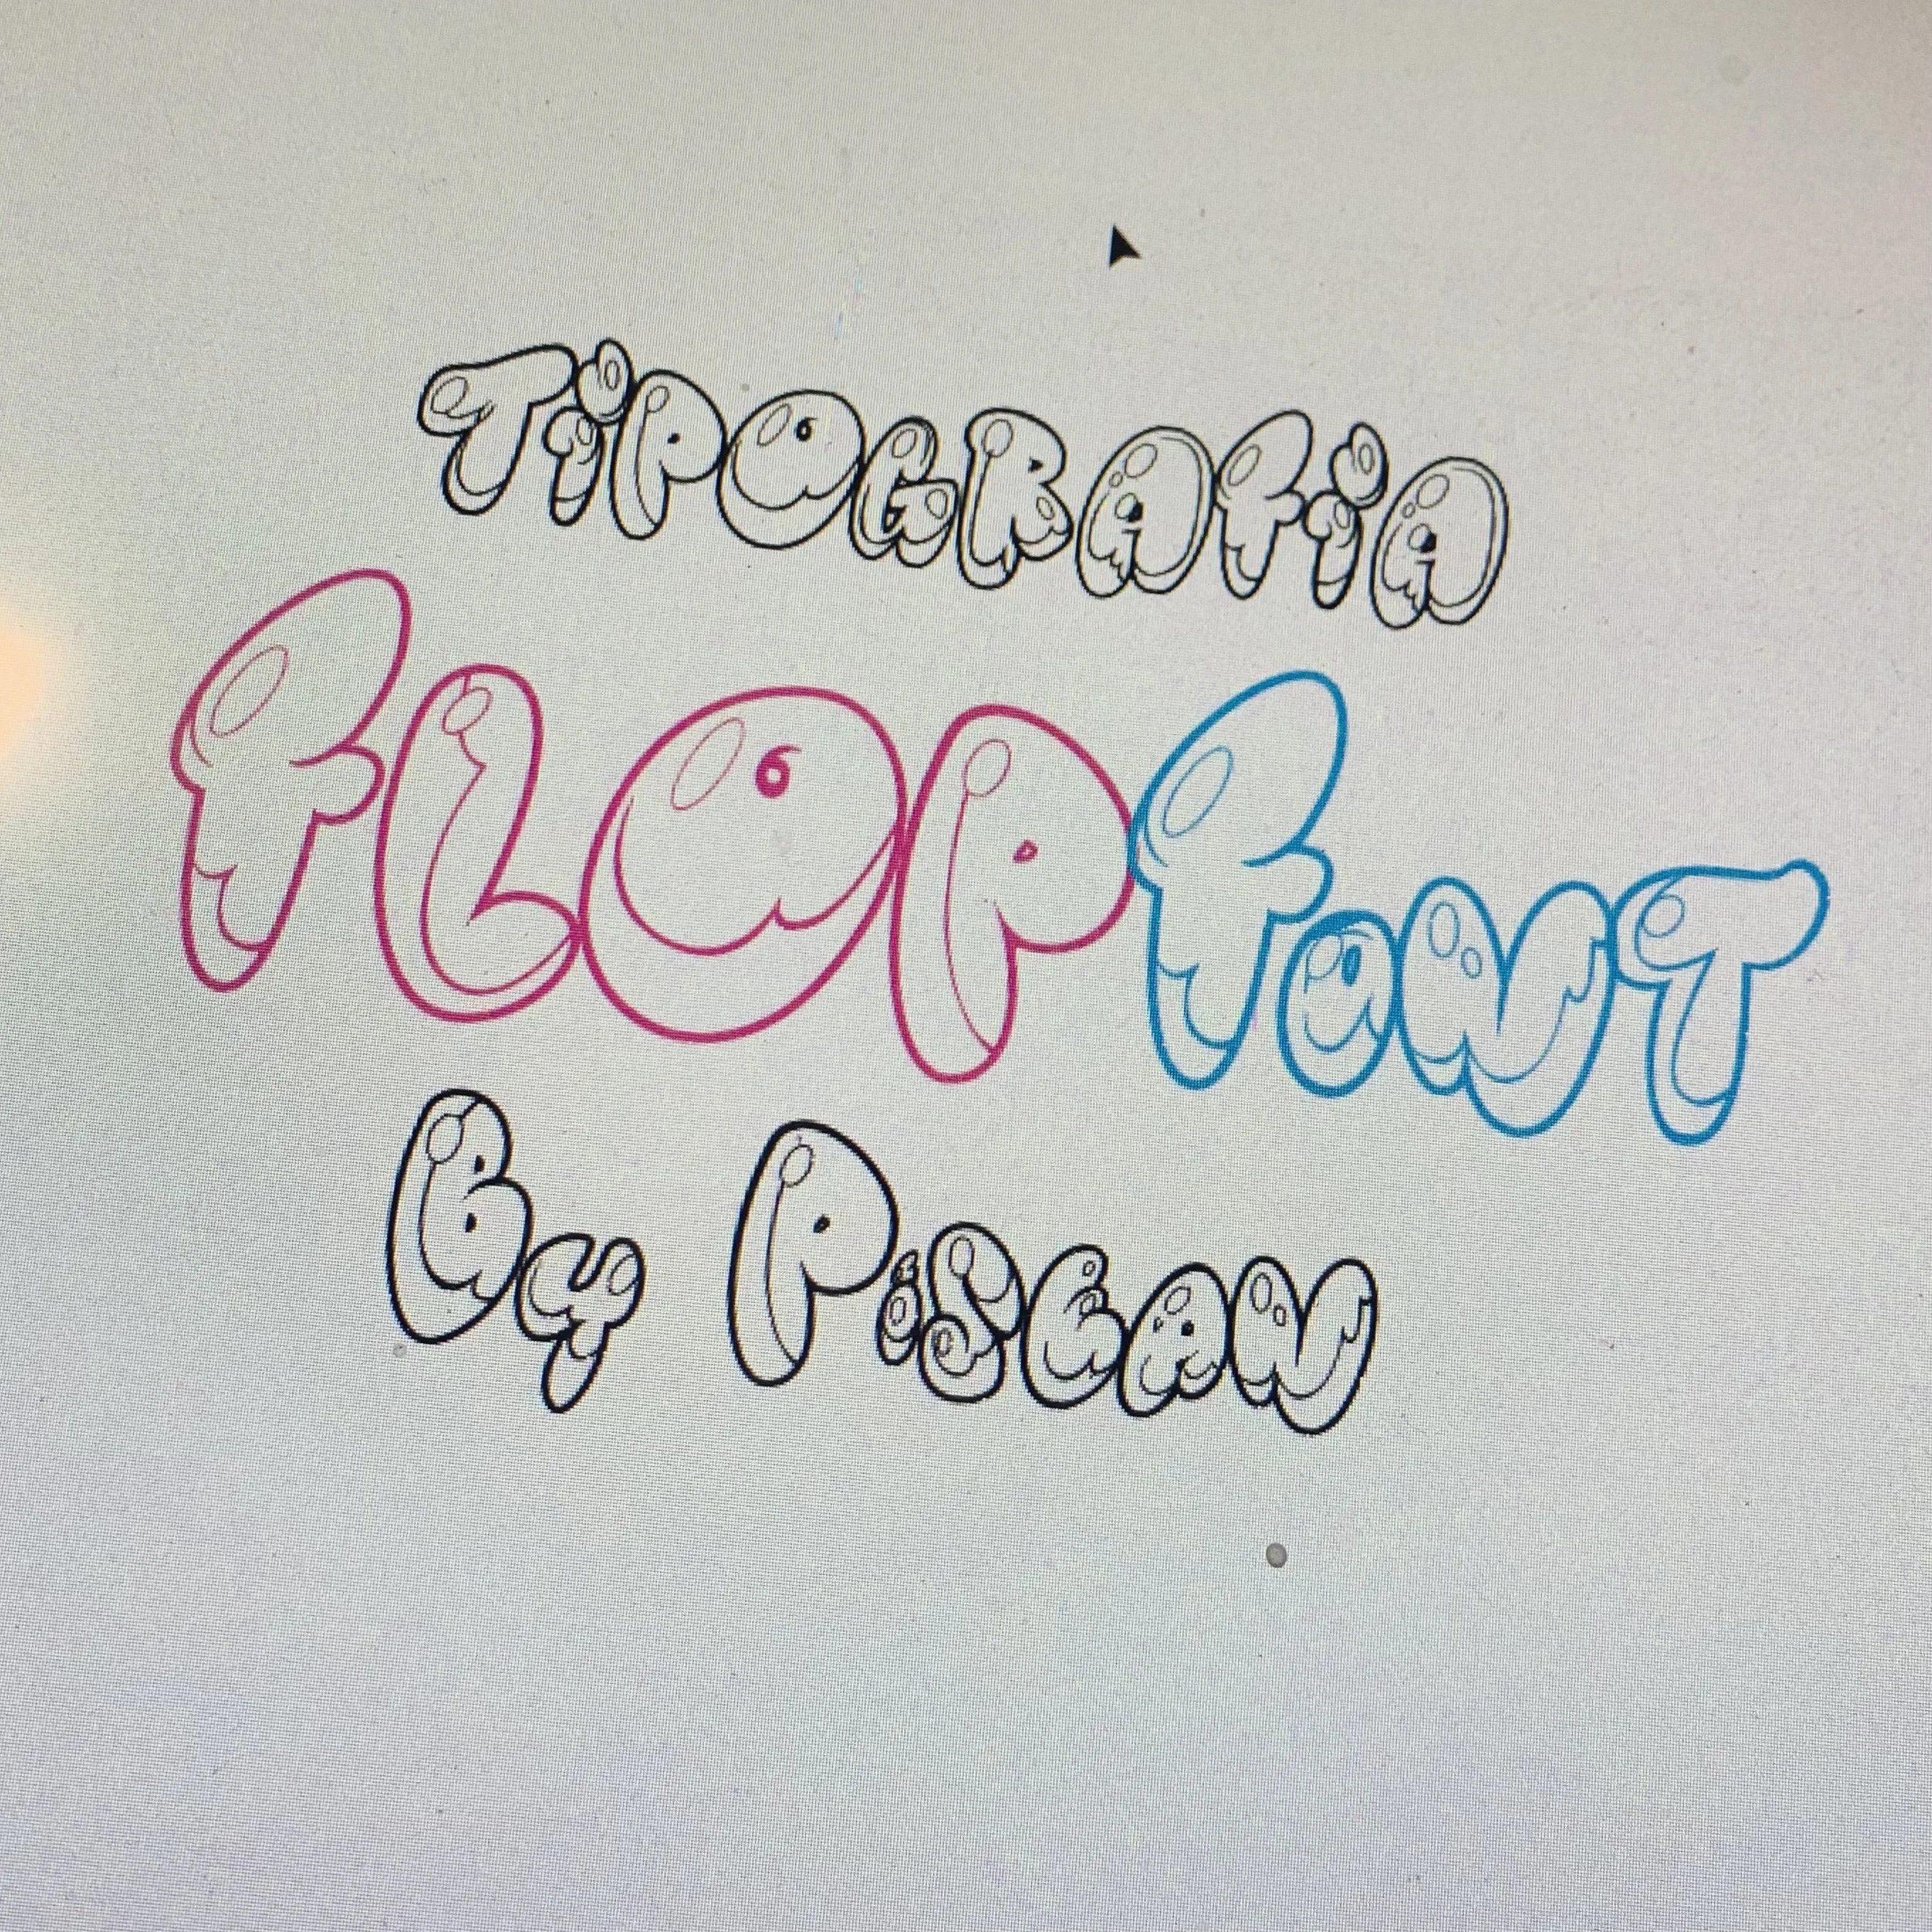 TiPOGRAfiA
FLOPfoNT
By PiSCAN